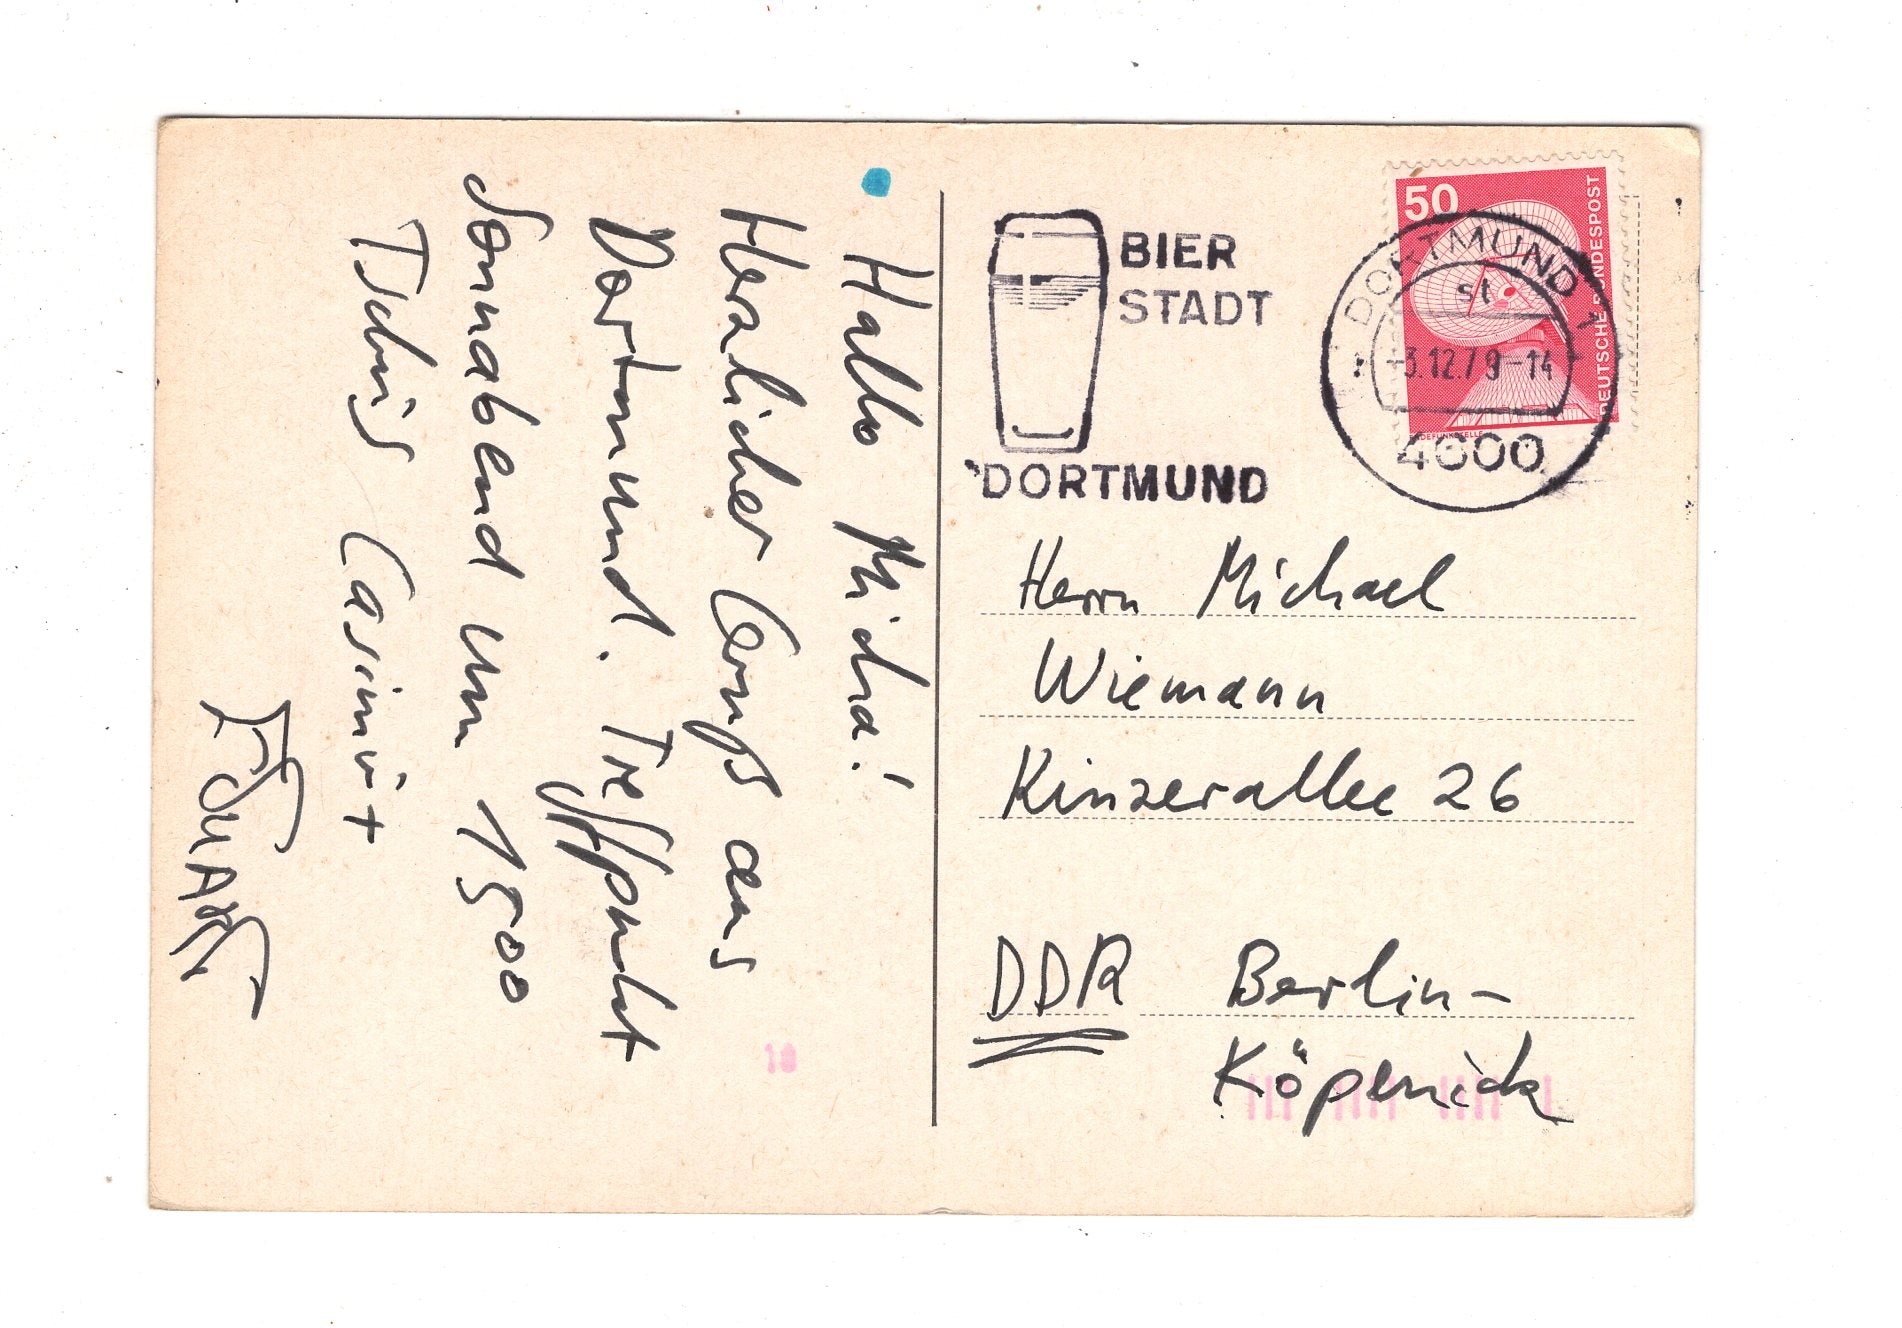 Hallo Micha!
Herzlicher Gruß aus
Dortmund. Treffpunkt
Sonnabend um 1500
Tschüß Casimir +
BIER
STADT
DORTMUND
50
DEUTSCHE BUNDESPOST
DORTMUND 1
st
-3.12.79-14
4600
Herrn Michael
Wiemann
Kinzerallee 26
DDR Berlin-
Köpenick
10